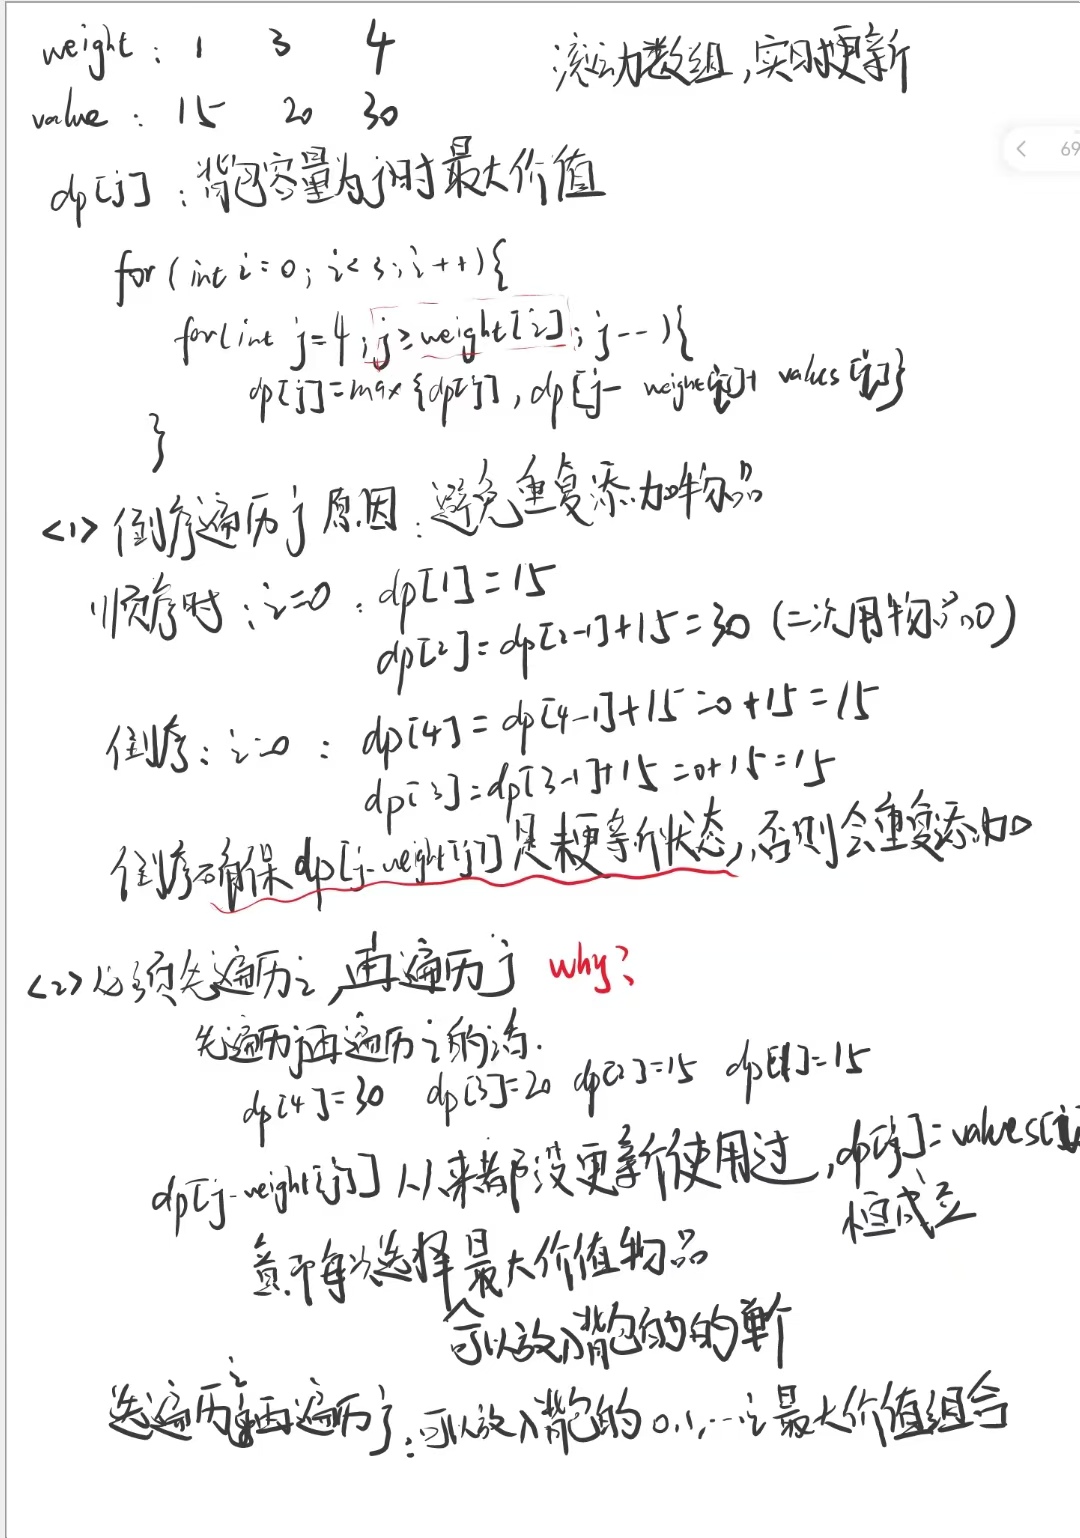 weight : 1 3 4
滚动数组,实时更新
value : 15 20 30
69
dp[j] : 背包容量为j时最大价值
for (int i=0; i<3; i++){
for(int j=4; j≥weight[i]; j--){
dp[j]=max{dp[j], dp[j-weight[i]]+values[i]}
}
<1> 倒序遍历j原因:避免重复添加物品
顺序时:i=0 : dp[1]=15
dp[2]=dp[2-1]+15=30 (二次用物品0)
倒序: i=0 : dp[4]=dp[4-1]+15=0+15=15
dp[3]=dp[3-1]+15=0+15=15
倒序确保dp[j-weight[j]]是未更新状态,否则会重复添加
<2> 必须先遍历i,再遍历j why?
先遍历j再遍历i的话.
dp[4]=30 dp[3]=20 dp[2]=15 dp[1]=15
dp[j-weight[j]]从来都没更新使用过,dp[j]=values[i]
恒成立
即每次选择最大价值物品
可以放入背包的的单个
先遍历i再遍历j:可以放入背包的0.1,…i最大价值组合